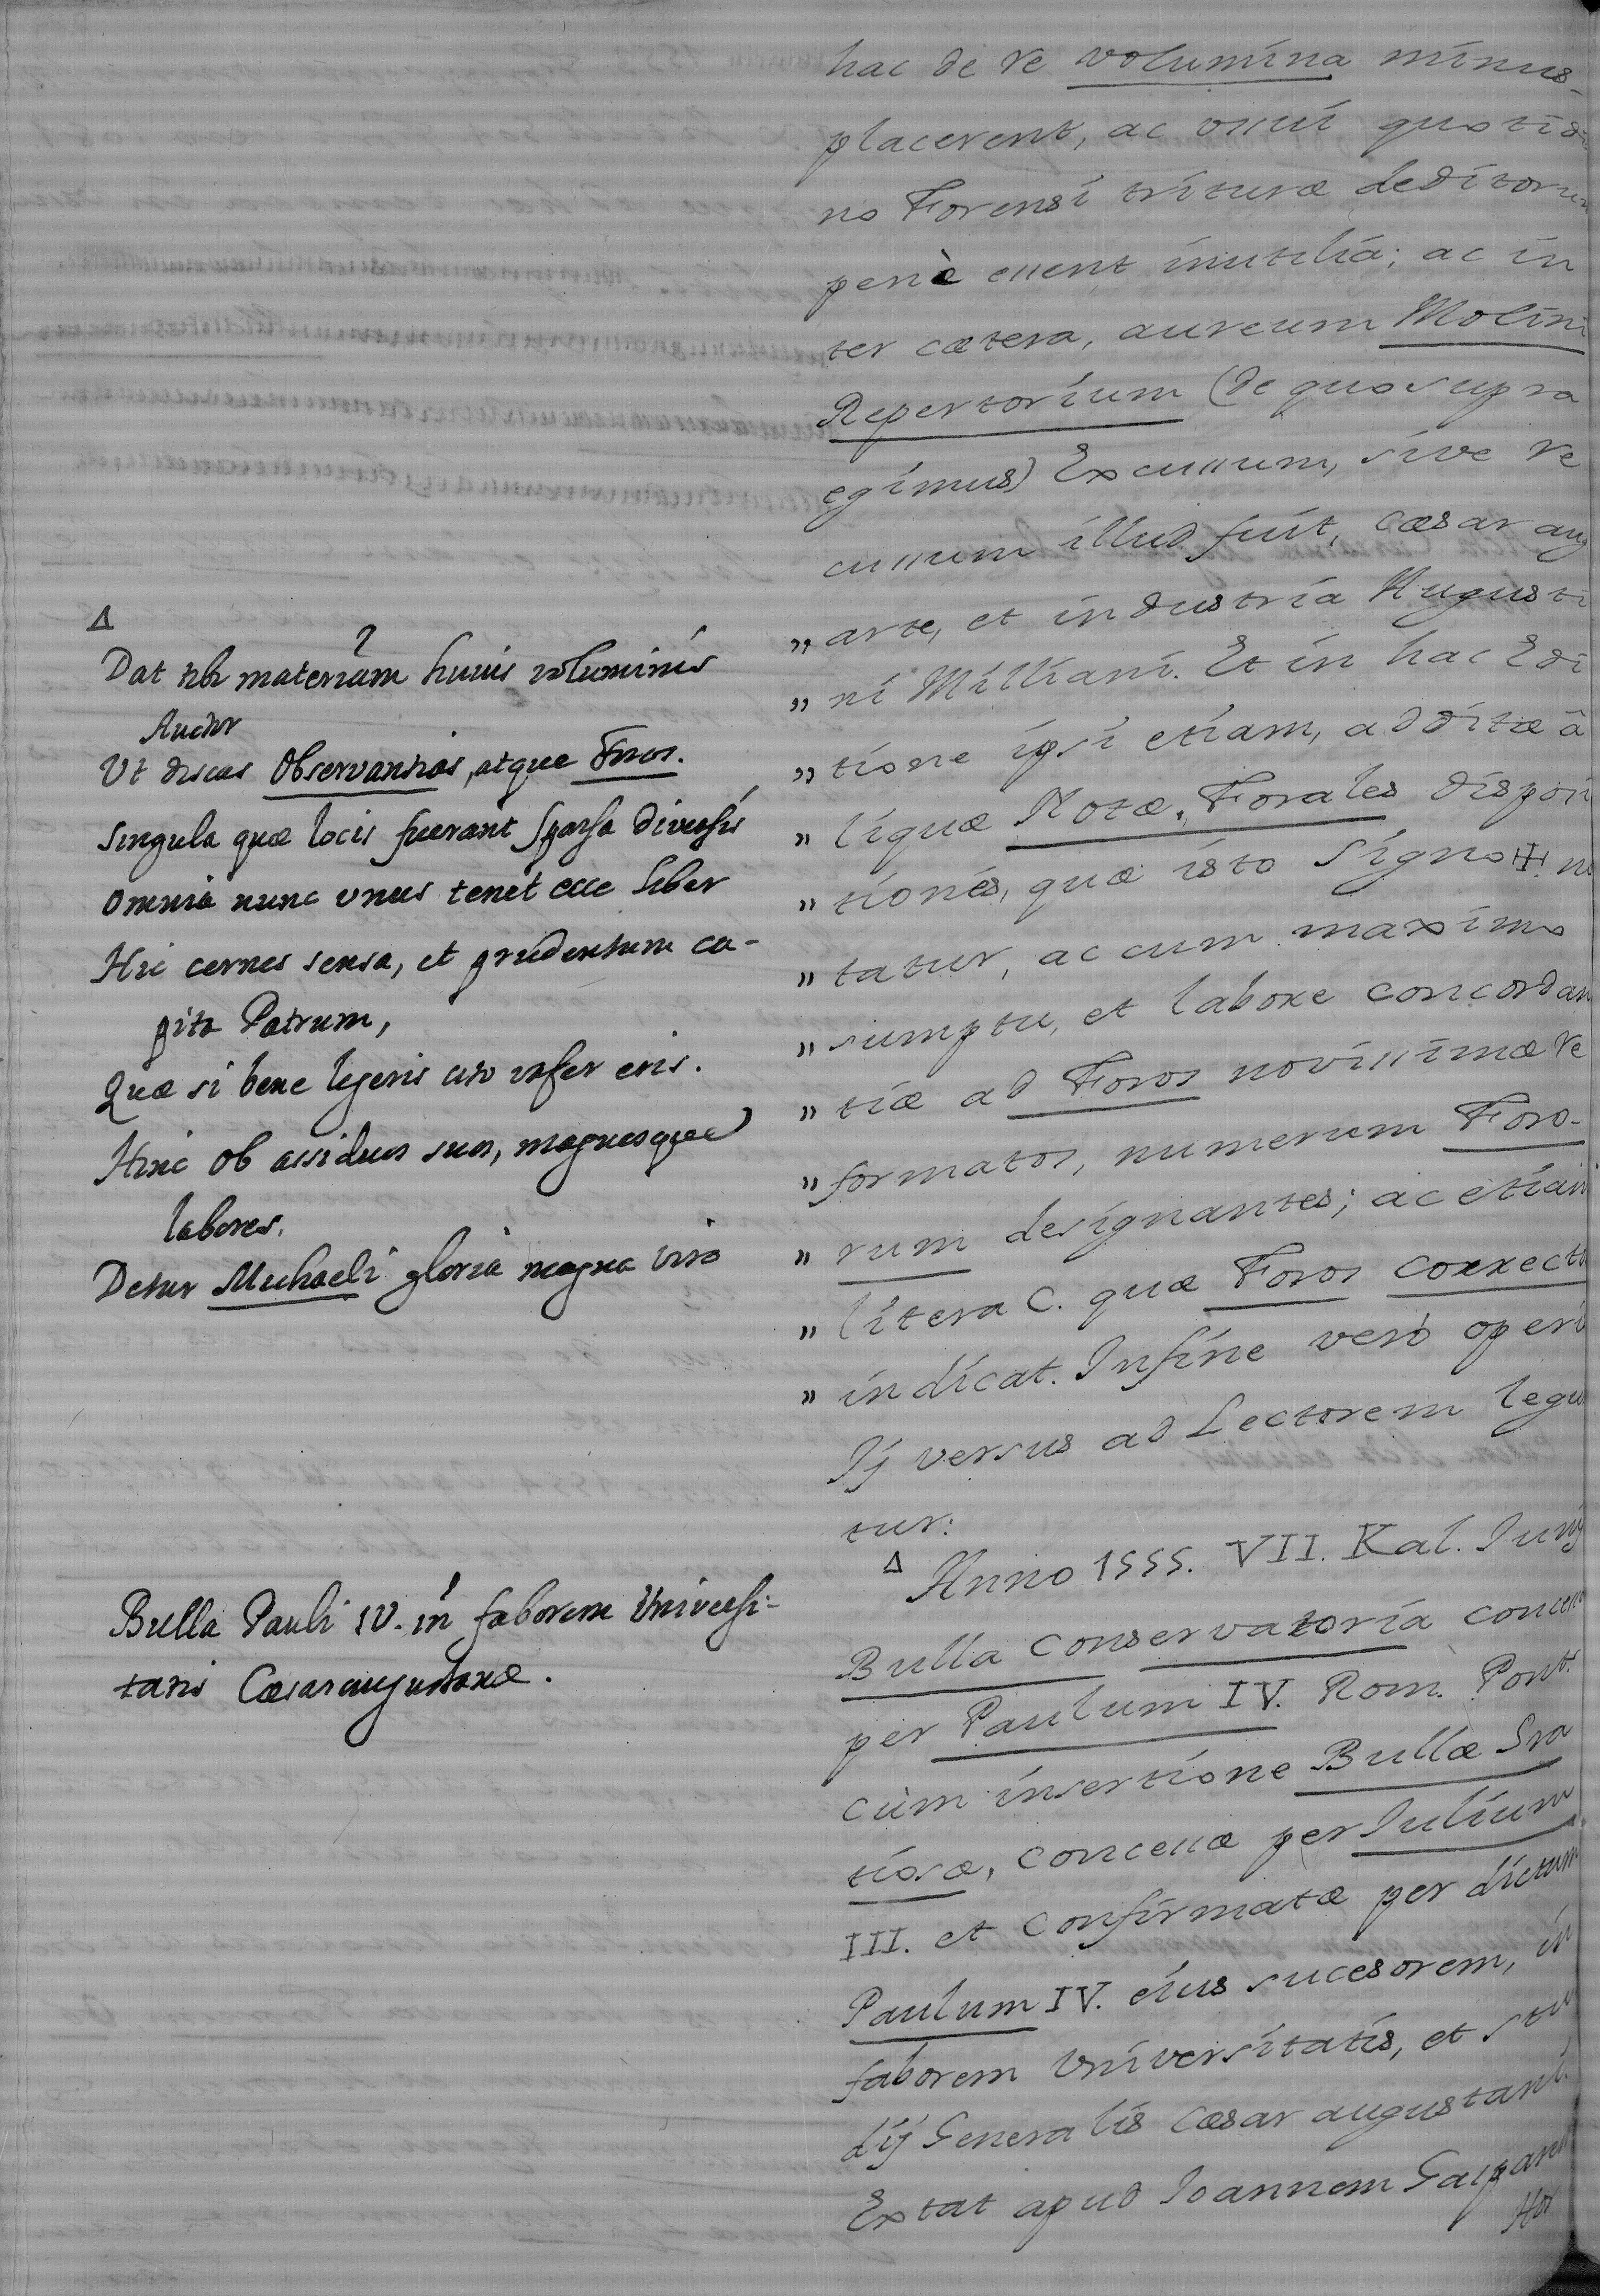 hac de re volumina minus-
placerent, ac usui quotidi
no Forensi trituræ deditoru
penè essent inutilia; ac in
ter cætera, aureum Molini
Repertorium (de quo supra
egimus) Excussum, sive re
cussum illud fuit, Cæsaraug
„ arte, et industria Augusti
„ ni Milliani. Et in hac Edi
„ tione ipsi etiam, additæ â
„ liquæ Notæ, Forales disposi
„ tiones, quæ isto signo ✠ no
„ tatur, ac cum maximo
„ sumptu, et labore concordan
„ tiæ ad Foros novissimæ re
„ formatos, numerum Foro-
„ rum designantes; ac etiam
„ litera C. quæ Foros correcto
„ indicat. Infine verò operi
Ij versus ad Lectorem legu
tur:
Δ
Δ
Dat tibi materiam huius voluminis
Auctor
Ut discas Observantias, atque Foros.
Singula quæ locis fuerant sparsa diversis
Omnia nunc unus tenet ecce liber
Hic cernes sensa, et prudentum ca-
pita Patrum,
Quæ si bene legeris
eris.
Hinc ob assiduos suos, magnosque
labores.
Detur Michaeli gloria magna viro
Anno 1555. VII. Kal. Junij
Bulla Conservatoria conces
per Paulum IV. Rom. Pont.
cùm insertione Bullæ Gra
tiosæ, concessæ per Iulium
III. et confirmatæ per dictum
Paulum IV. eius sucesorem, in
faborem Universitatis, et stu
dij Generalis Cæsaraugustani.
Extat apud Ioannem Gasparem
Hor
Bulla Pauli IV. in faborem Universi-
tatis Cæsaraugustanæ.